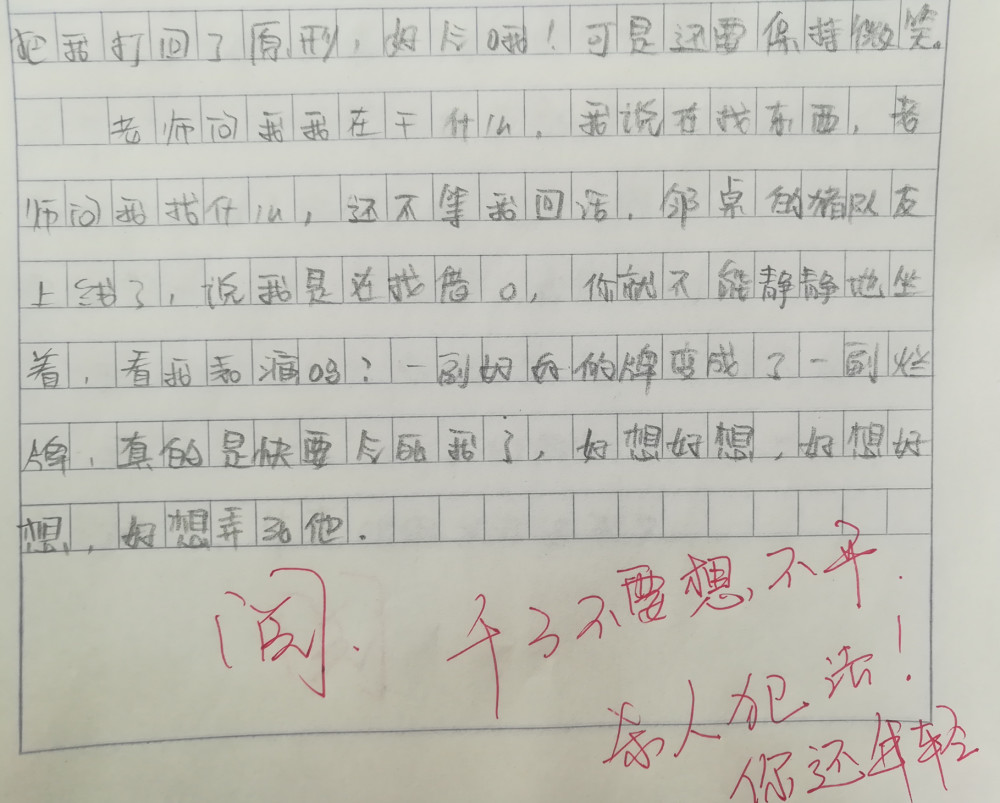 把我打回了原形，好尴尬！可是还要保持微笑。
老师问我我在干什么，我说在找东西，老
师问我找什么，还不等我回话，邻桌的猪队友
上线了，说我是在找借口，你就不能静静地坐
着，看我表演吗？一副好好的牌变成了一副烂
牌，真的是快要气死我了，好想好想，好想好
想，好想弄死他．
阅．
千万不要想不开．
杀人犯法！
你还年轻